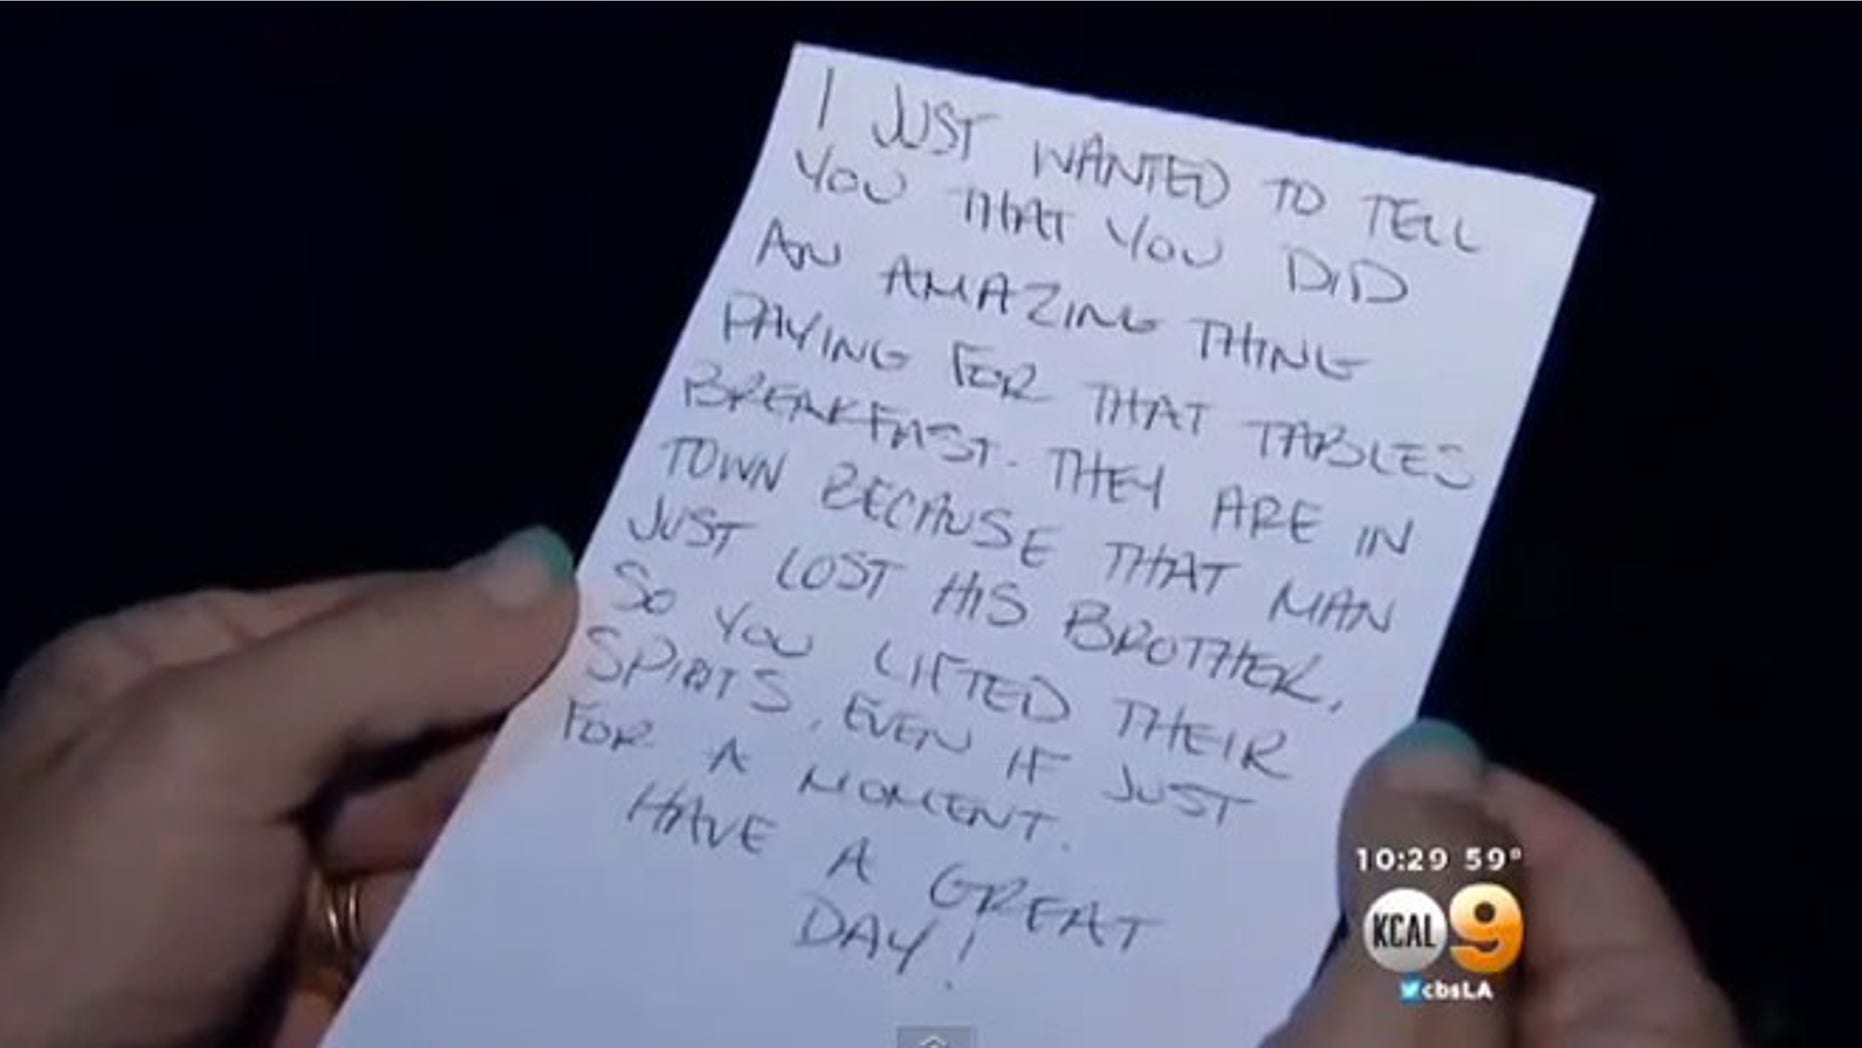 I JUST WANTED TO TELL
YOU THAT YOU DID
AN AMAZING THING
PAYING FOR THAT TABLES
BREAKFAST. THEY ARE IN
TOWN BECAUSE THAT MAN
JUST LOST HIS BROTHER,
SO YOU LIFTED THEIR
SPIRITS, EVEN IF JUST
FOR A MOMENT.
HAVE A GREAT
DAY!
10:29 59°
KCAL 9
cbsLA